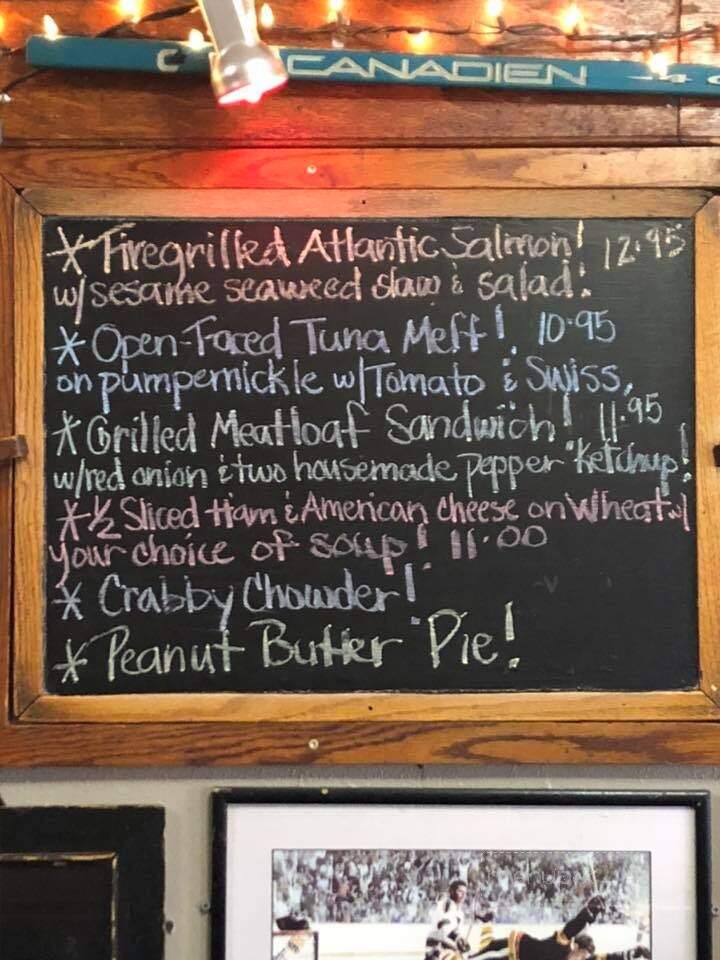 C CANADIEN
* Firegrilled Atlantic Salmon! 12.95
w/ sesame seaweed slaw & salad!
* Open-Faced Tuna Melt! 10.95
on pumpernickle w/Tomato & Swiss,
* Grilled Meatloaf Sandwich! 11.95
w/red onion & two housemade pepper "Ketchup!
*-½ Sliced Ham & American cheese on Wheat w/
your choice of soup! 11.00
* Crabby Chowder!
* Peanut Butter Pie!